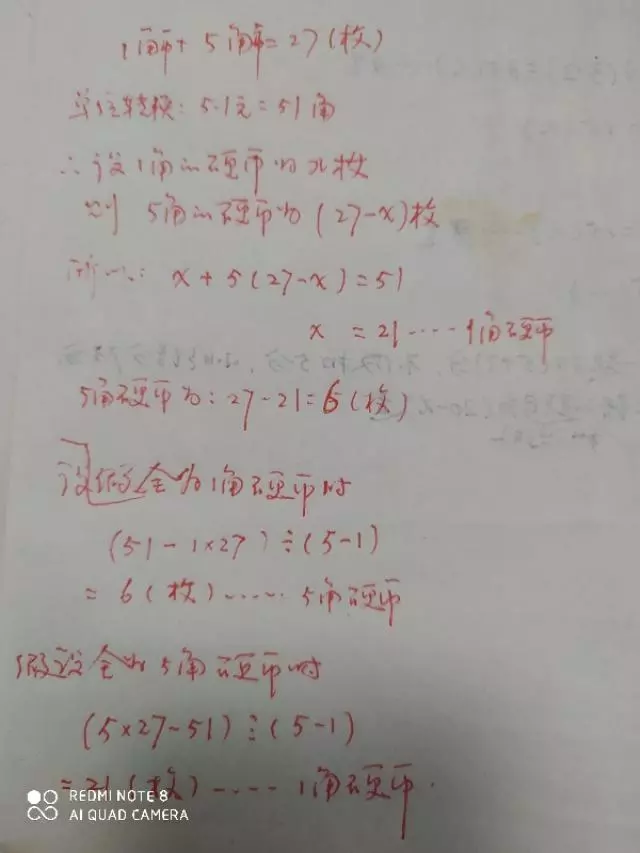 1角币+5角币=27(枚)
单位转换:5.1元=51角
∴设1角的硬币为x枚
则 5角的硬币为(27-x)枚
所以: x+5(27-x)=51
x =21····1角硬币
5角硬币为:27-21=6(枚)
设假全为1角硬币时
(51-1×27)÷(5-1)
=6(枚)······5角硬币
假设全为5角硬币时
(5×27-51)÷(5-1)
=21(枚)·····1角硬币.
REDMI NOTE 8
AI QUAD CAMERA